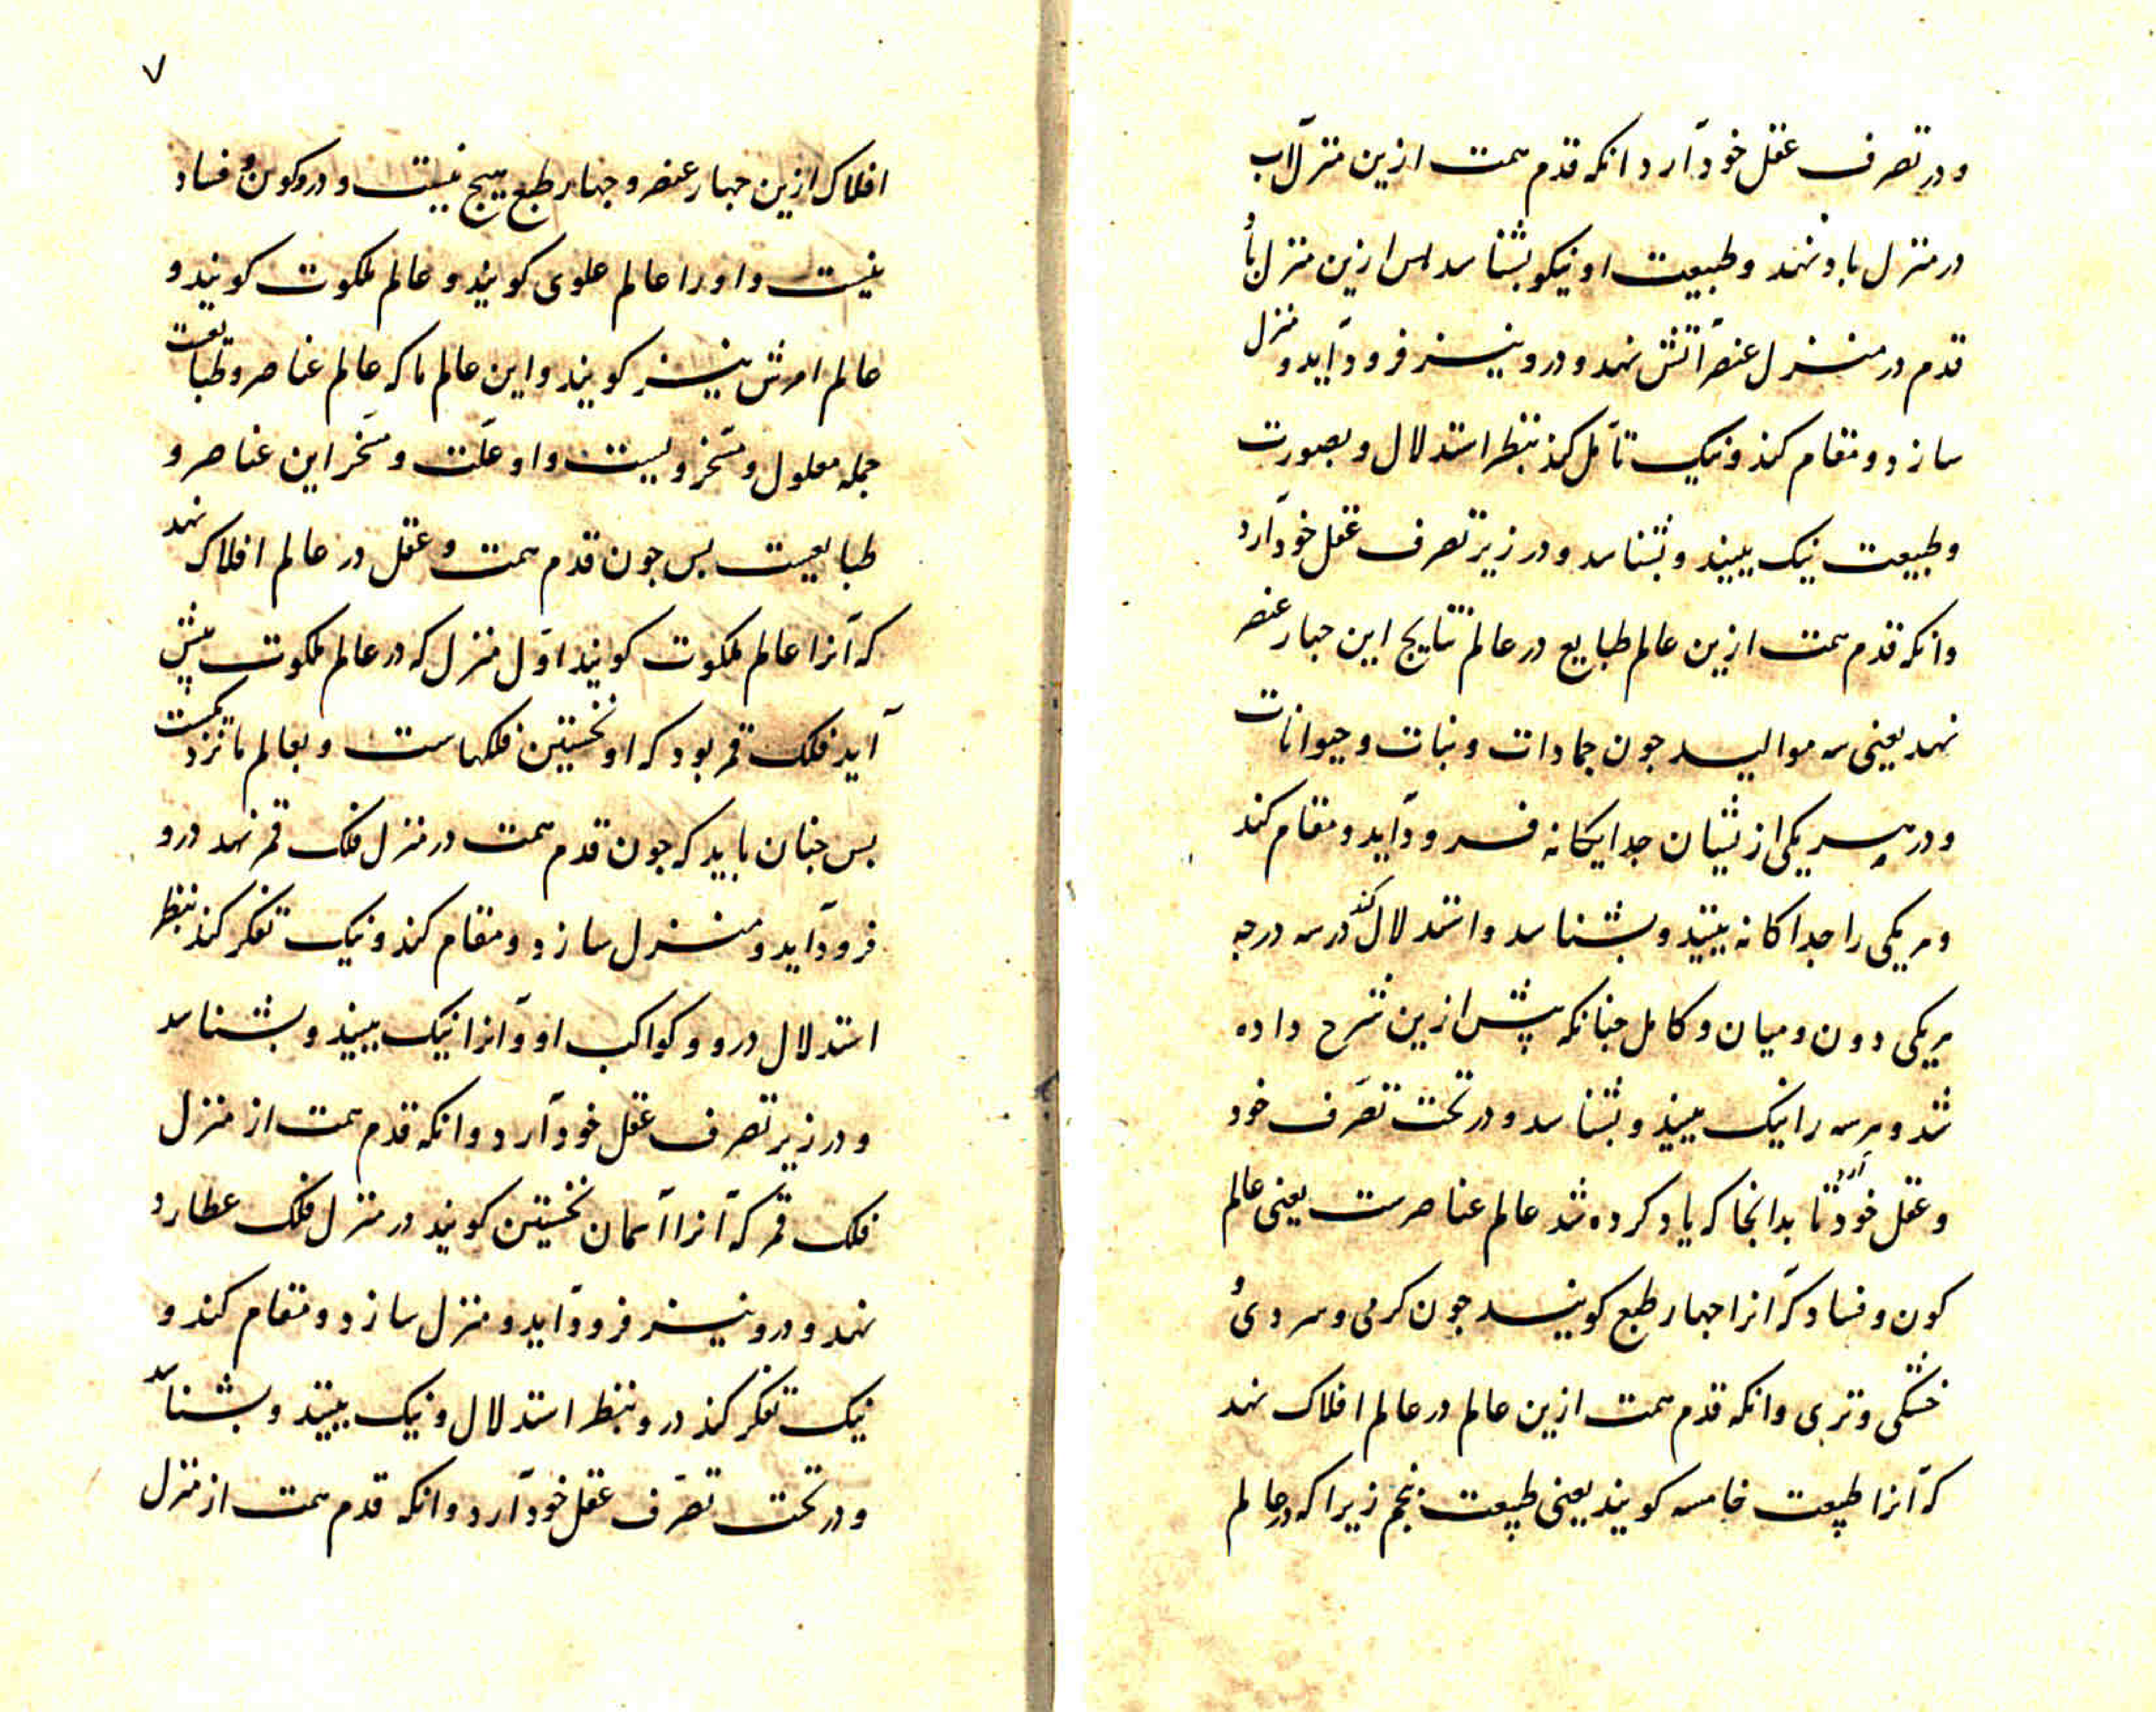 و در تصرف عقل خود آرد انکه قدم همت ازین منزل آب
در منزل باد نهد و طبیعت او نیکو بشناسد پس ازین منزل باد
قدم در منزل عنصر آتش نهد و درو نیز فرود آید و منزل
سازد و مقام کند و نیک تأمل کند بنظر استدلال و بصورت
و طبیعت نیک ببیند و بشناسد و در زیر تصرف عقل خود آرد
وانکه قدم همت ازین عالم طبایع در عالم نتایج این جهار عنصر
نهد یعنی سه موالید جون جمادات و نبات و حیوانات
و در هر یکی ازیشان جداکانه فرود آید و مقام کند
و هر یکی را جداکانه ببیند و بشناسد و استدلال کند در سه درجه
هر یکی دون و میان و کامل جنانکه پیش ازین شرح داده
شد و هر سه را نیک ببیند و بشناسد و در تحت تصرّف خود
و عقل خود آرد تا بدانجا که یاد کرده شد عالم عناصرست یعنی عالم
کون و فساد که آنرا جهار طبع کویند جون کرمی و سردی و
خشکی و تری وانکه قدم همت ازین عالم در عالم افلاک نهد
که آنرا طبیعت خامسه کویند یعنی طبیعت پنجم زیرا که در عالم
۷
افلاک ازین جهار عنصر و جهار طبع هیج نیست و درو کون و فساد
نیست و او را عالم علوی کویند و عالم ملکوت کویند و
عالم امرش نیز کویند و این عالم ما که عالم عناصر و طبایعست
جمله معلول و مسخّر ویست و او علّت و مسخّر این عناصر و
طبایعست پس جون قدم همت و عقل در عالم افلاک نهد
که آنرا عالم ملکوت کویند اوّل منزل که در عالم ملکوت پیش
آید فلک قمر بود که او نخستین فلکهاست و بعالم ما نزدیکست
بس جنان باید که جون قدم همت در منزل فلک قمر نهد درو
فرود آید و منزل سازد و مقام کند و نیک تفکر کند بنظر
استدلال درو و کواکب او و آنرا نیک ببیند و بشناسد
و در زیر تصرف عقل خود آرد وانکه قدم همت از منزل
فلک قمر که آنرا آسمان نخستین کویند در منزل فلک عطارد
نهد و درو نیز فرود آید و منزل سازد و مقام کند و
نیک تفکر کند درو بنظر استدلال و نیک ببیند و بشناسد
و در تحت تصرّف عقل خود آرد وانکه قدم همت از منزل